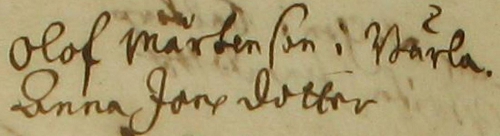 Olof Mårtenson i Wärla.
Anna Jons dotter